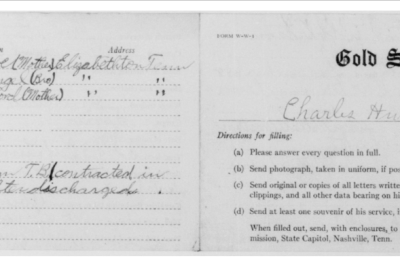 Address
(Mother) Elizabethton Tenn
(Bro) " "
(Mother) " "
T.B. contracted in
discharged.
Gold S
Charles Hu
Directions for filling:
(a) Please answer every question in full.
(b) Send photograph, taken in uniform, if po
(c) Send original or copies of all letters writte
clippings, and all other data bearing on hi
(d) Send at least one souvenir of his service, i
When filled out, send, with enclosures, to
mission, State Capitol, Nashville, Tenn.